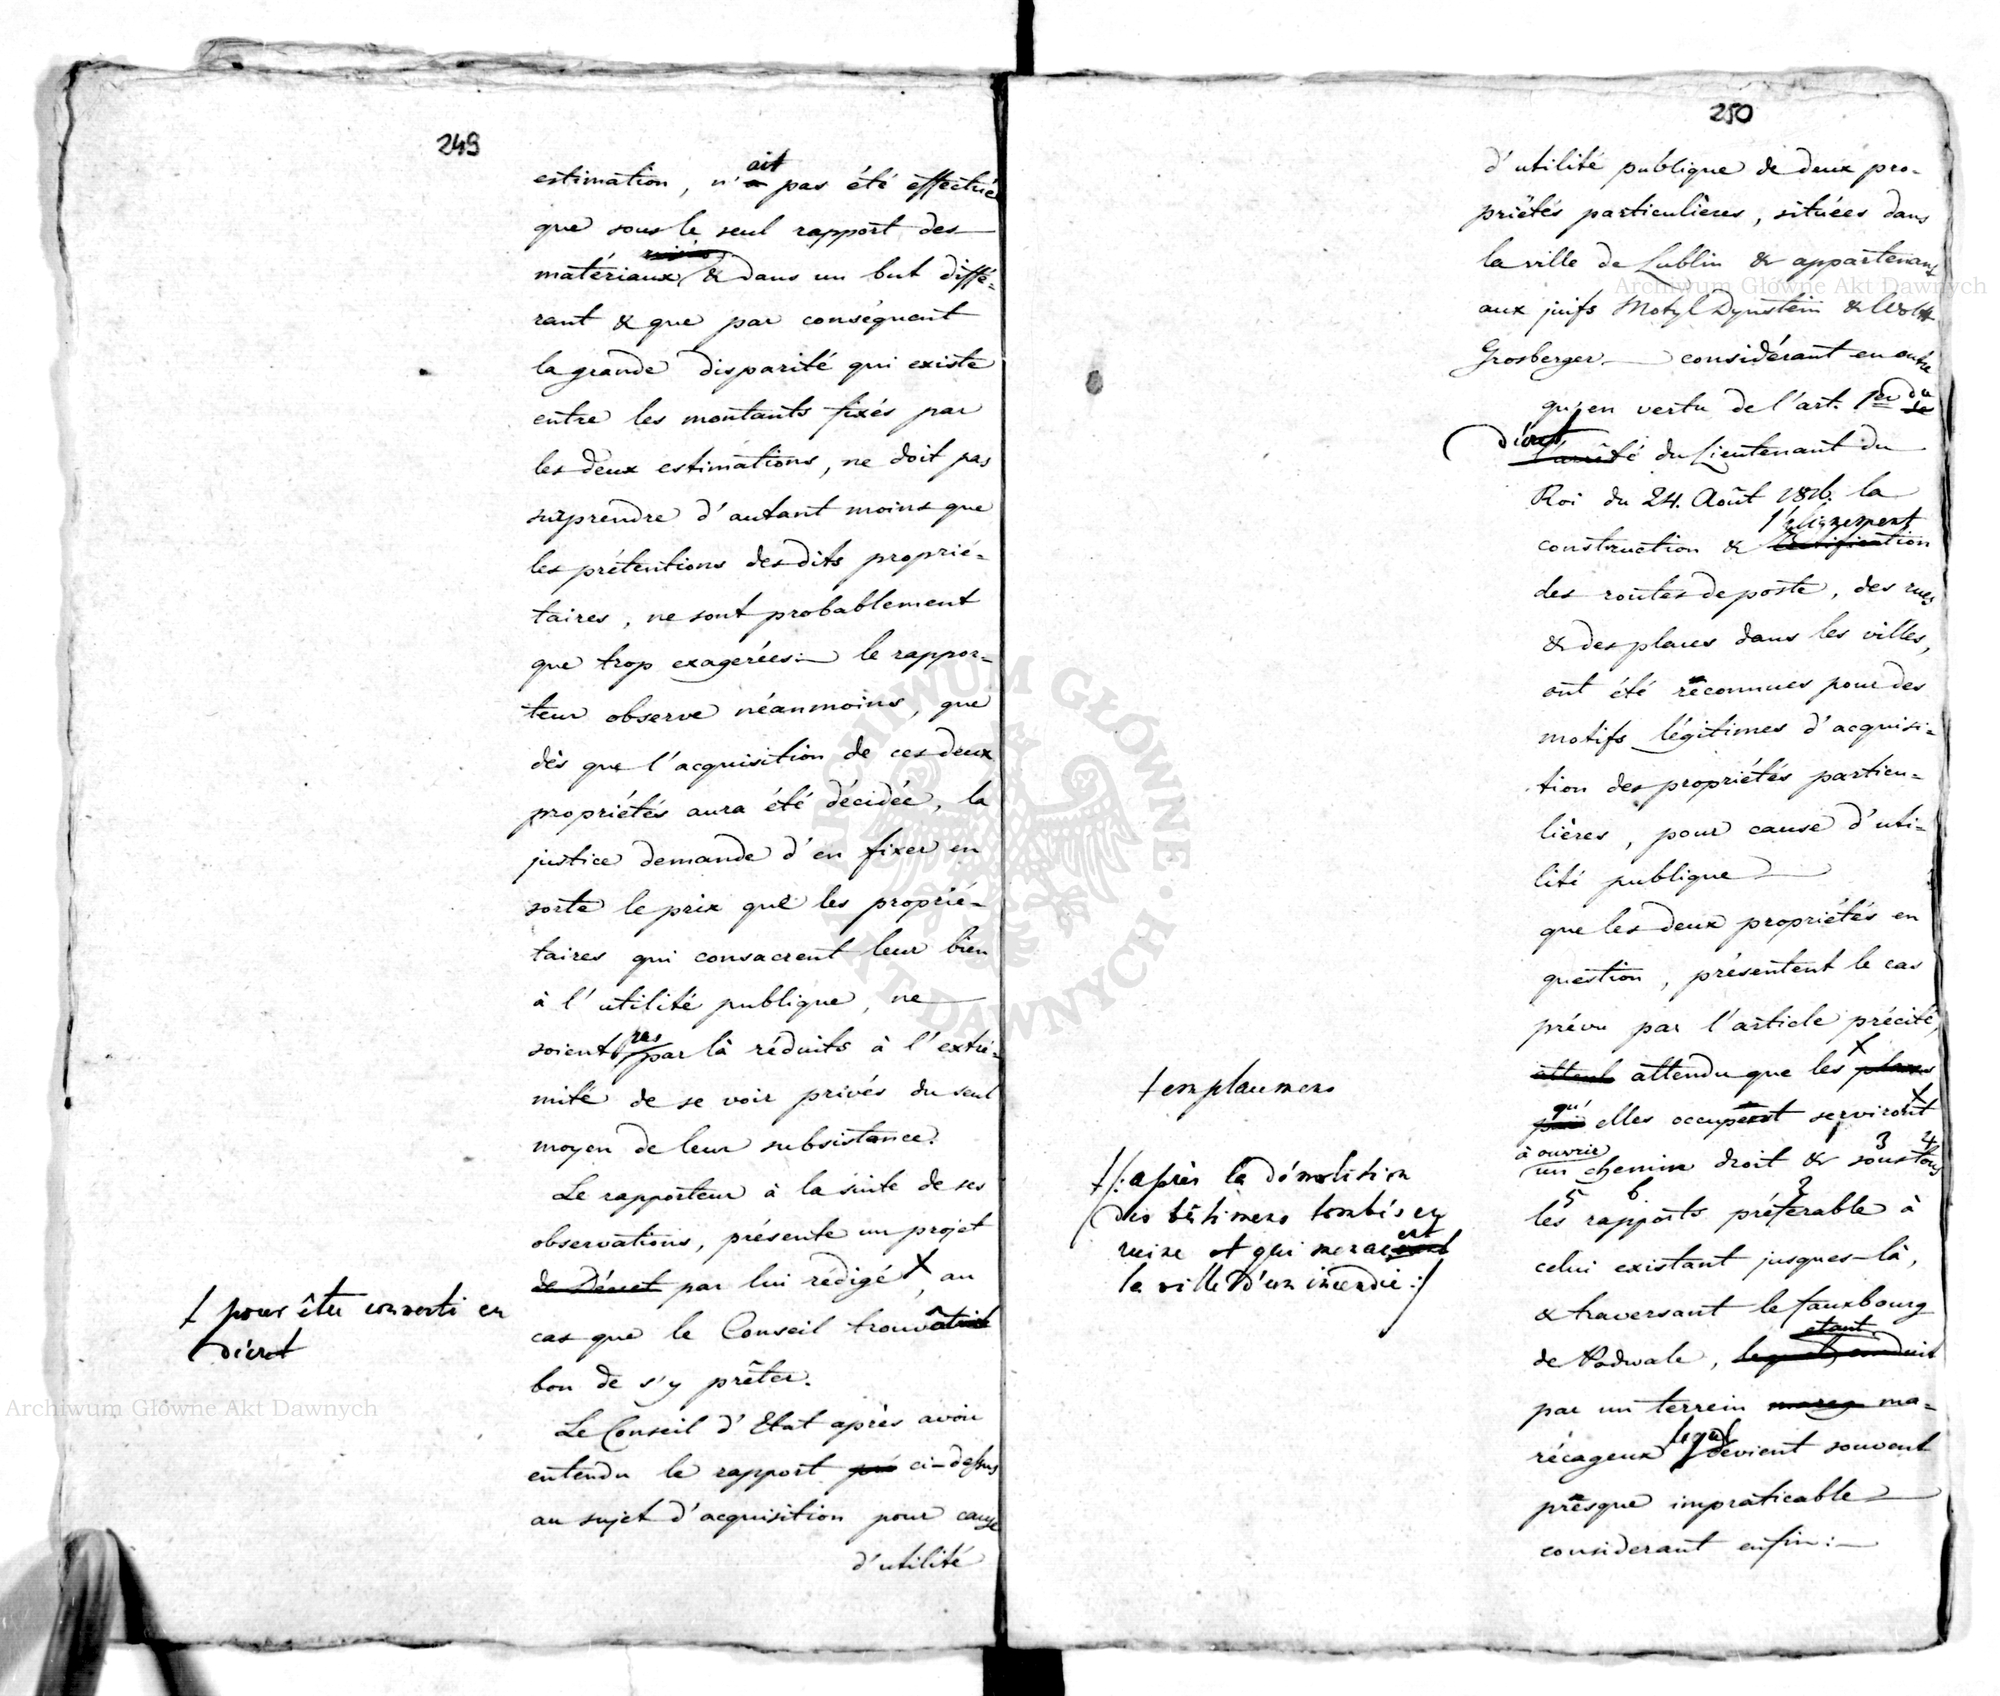 249
estimation, n'ait pas été effectuée
que sous le seul rapport des
matériaux & dans un but diffé-
rant & que par conséquent
la grande disparité qui existe
entre les montants fixés par
les deux estimations, ne doit pas
surprendre d'autant moins que
les prétentions des dits proprié-
taires, ne sont probablement
que trop exagerées:— le rappor-
teur observe néanmoins, que
dès que l'acquisition de ces deux
propriétés aura été décidée, la
justice demande d'en fixer en
sorte le prix que les proprié-
taires qui consacrent leur bien
à l'utilité publique, ne
soient pas par là réduits à l'extré-
mité de se voir privés du seul
moyen de leur subsistance.
Le rapporteur à la suite de ses
observations, présente un projet
de Décret par lui rédigé, au
cas que le Conseil trouvât
bon de s'y prêter.
Le Conseil d'Etat après avoir
entendu le rapport ci-dessus
au sujet d'acquisition pour cause
d'utilité
† pour être converti en
décret
250
d'utilité publique de deux pro-
priétés particulières, situées dans
la ville de Lublin & appartenant
aux juifs Motyl Dynstein & Wolff
Grosberger.— considérant en outre
qu'en vertu de l'art. 1er du de
décret l'arrêté du Lieutenant du
Roi du 24. Août 1816. la
construction & l'alignement rectification
des routes de poste, des rues
& des places dans les villes,
ont été reconnues pour des
motifs légitimes d'acquisi-
tion des propriétés particu-
lières, pour cause d'uti-
lité publique —
que les deux propriétés en
question, présentent le cas
prévu par l'article précité,
attend attendu que les places
qu'elles occupent serviront
à ouvrir un chemin droit & 3 sous 4 tous
5 les 6 rapports 2 préférable à
celui existant jusques-là,
& traversant le fauxbourg
de Podwale, étant
par un terrein mareg ma-
récageux lequel devient souvent
presque impraticable —
considerant enfin:—
† emplacemens
†/: après la démolition
des bâtimens tombés en
ruine et qui menacent
la ville d'un incendie :/
Archiwum Główne Akt Dawnych
Archiwum Główne Akt Dawnych
ARCHIWUM GŁÓWNE AKT DAWNYCH